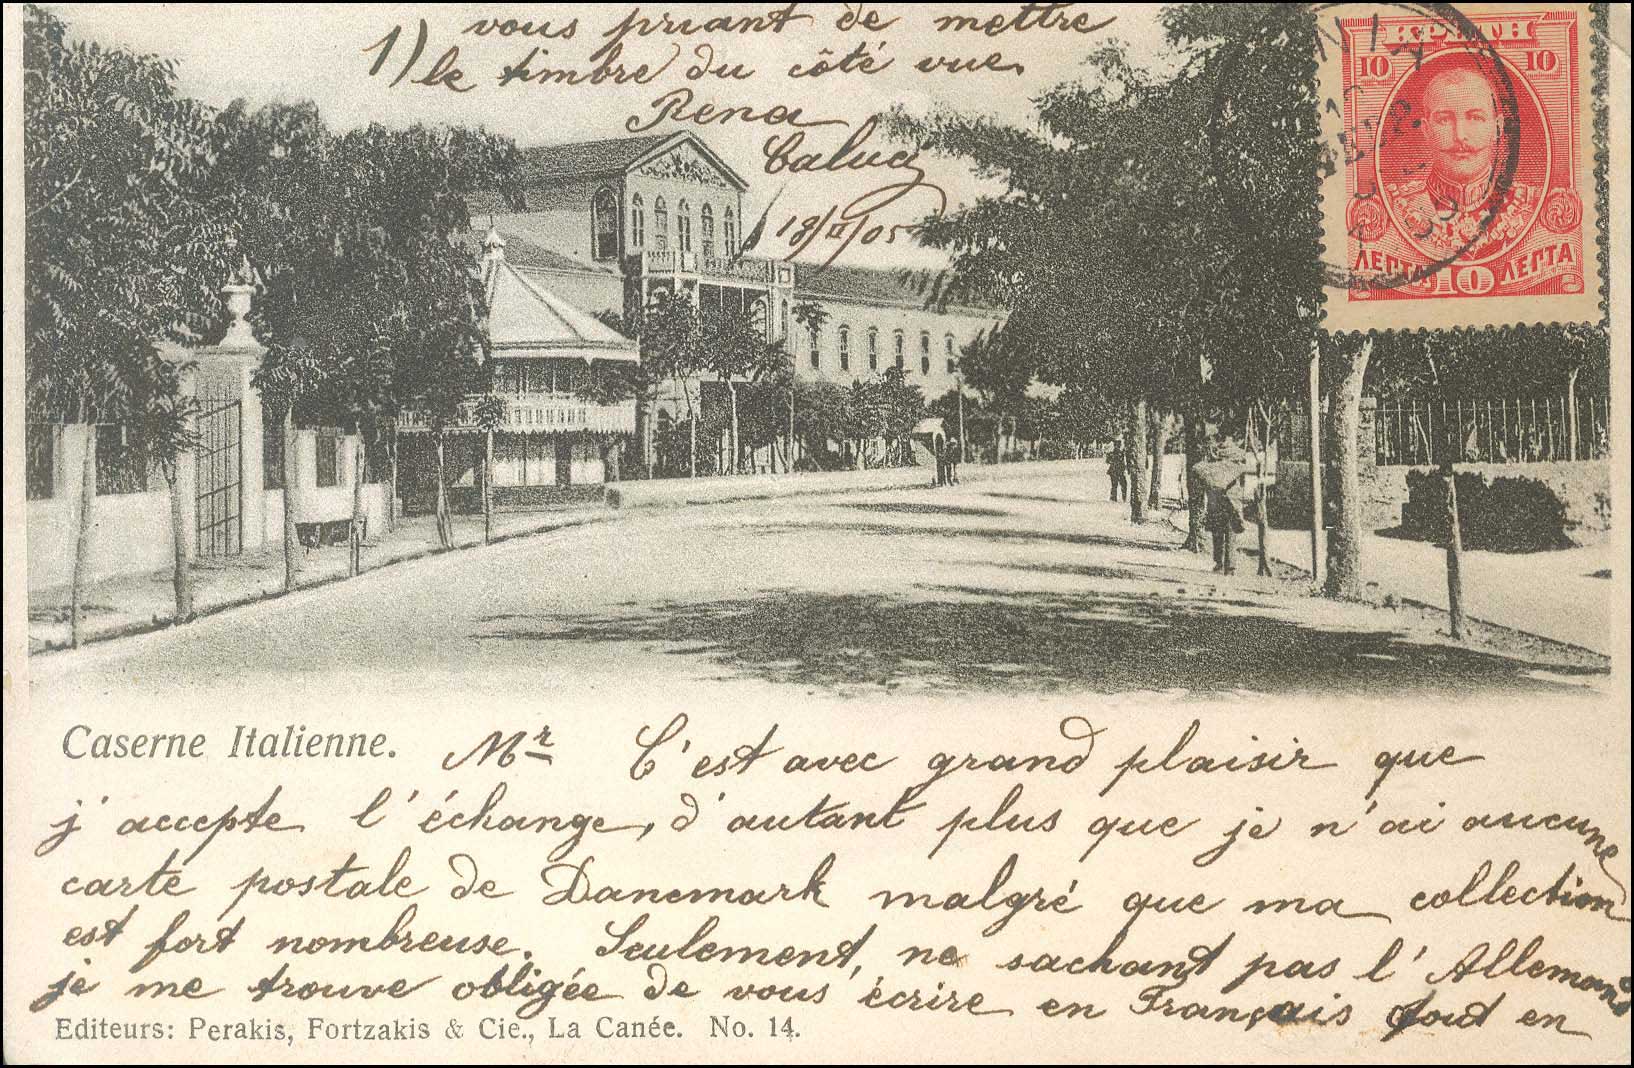 1) vous priant de mettre
le timbre du côté vue.
Rena
18/II/05
ΚΡΗΤΗ
10 10
ΛΕΠΤΑ 10 ΛΕΠΤΑ
Caserne Italienne.
Mr C'est avec grand plaisir que
j'accepte l'échange, d'autant plus que je n'ai aucune
carte postale de Danemark malgré que ma collection
est fort nombreuse. Seulement, ne sachant pas l'Allemand
je me trouve obligée de vous écrire en Français tout en
Editeurs: Perakis, Fortzakis & Cie., La Canée. No. 14.